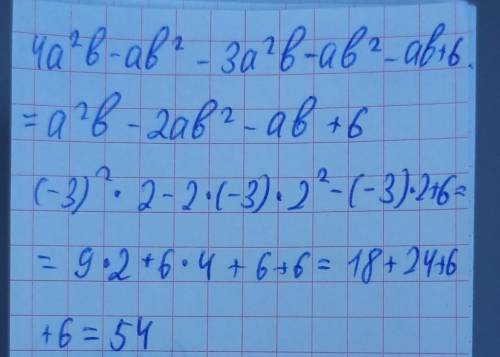 4a²b - ab² - 3a²b - ab² - ab + 6.
= a²b - 2ab² - ab + 6
(-3)² · 2 - 2 · (-3) · 2² - (-3) · 2 + 6 =
= 9 · 2 + 6 · 4 + 6 + 6 = 18 + 24 + 6
+ 6 = 54